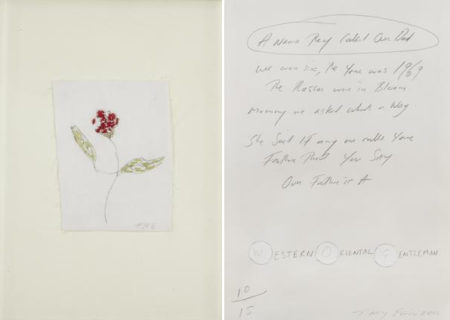 A Name They Called Our Dad
We was six, the Year was 1969
The Roses were in Bloom
Mummy we asked what's a Wog
She Said If any one calls Your
Father That You Say
Our Father is A
WESTERN ORIENTAL GENTLEMAN
10/15